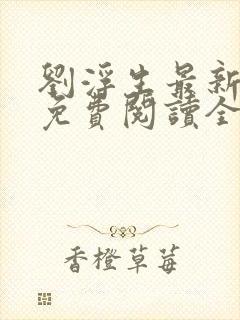 劉浮生最新
免費閱讀全
香橙草莓